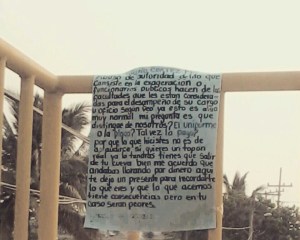 de autoridad
consiste en la exageración o
funcionarios públicos hacen de las
facultades que les están considera-
das para el desempeño de su cargo
u oficio según yo esto es algo
muy normal mi pregunta es que
distingue de nosotros? El uniforme
o la Tal vez la
por que lo que hiciste no es de
si quieres un topon
real ya lo tendras tienes que salir
de tu cueva bien me acuerdo que
andabas llorando por dinero aqui
te dejo un presente para recordarte
lo que eres y que lo que acemos
tiene consecuencias pero en tu
caso seran peores